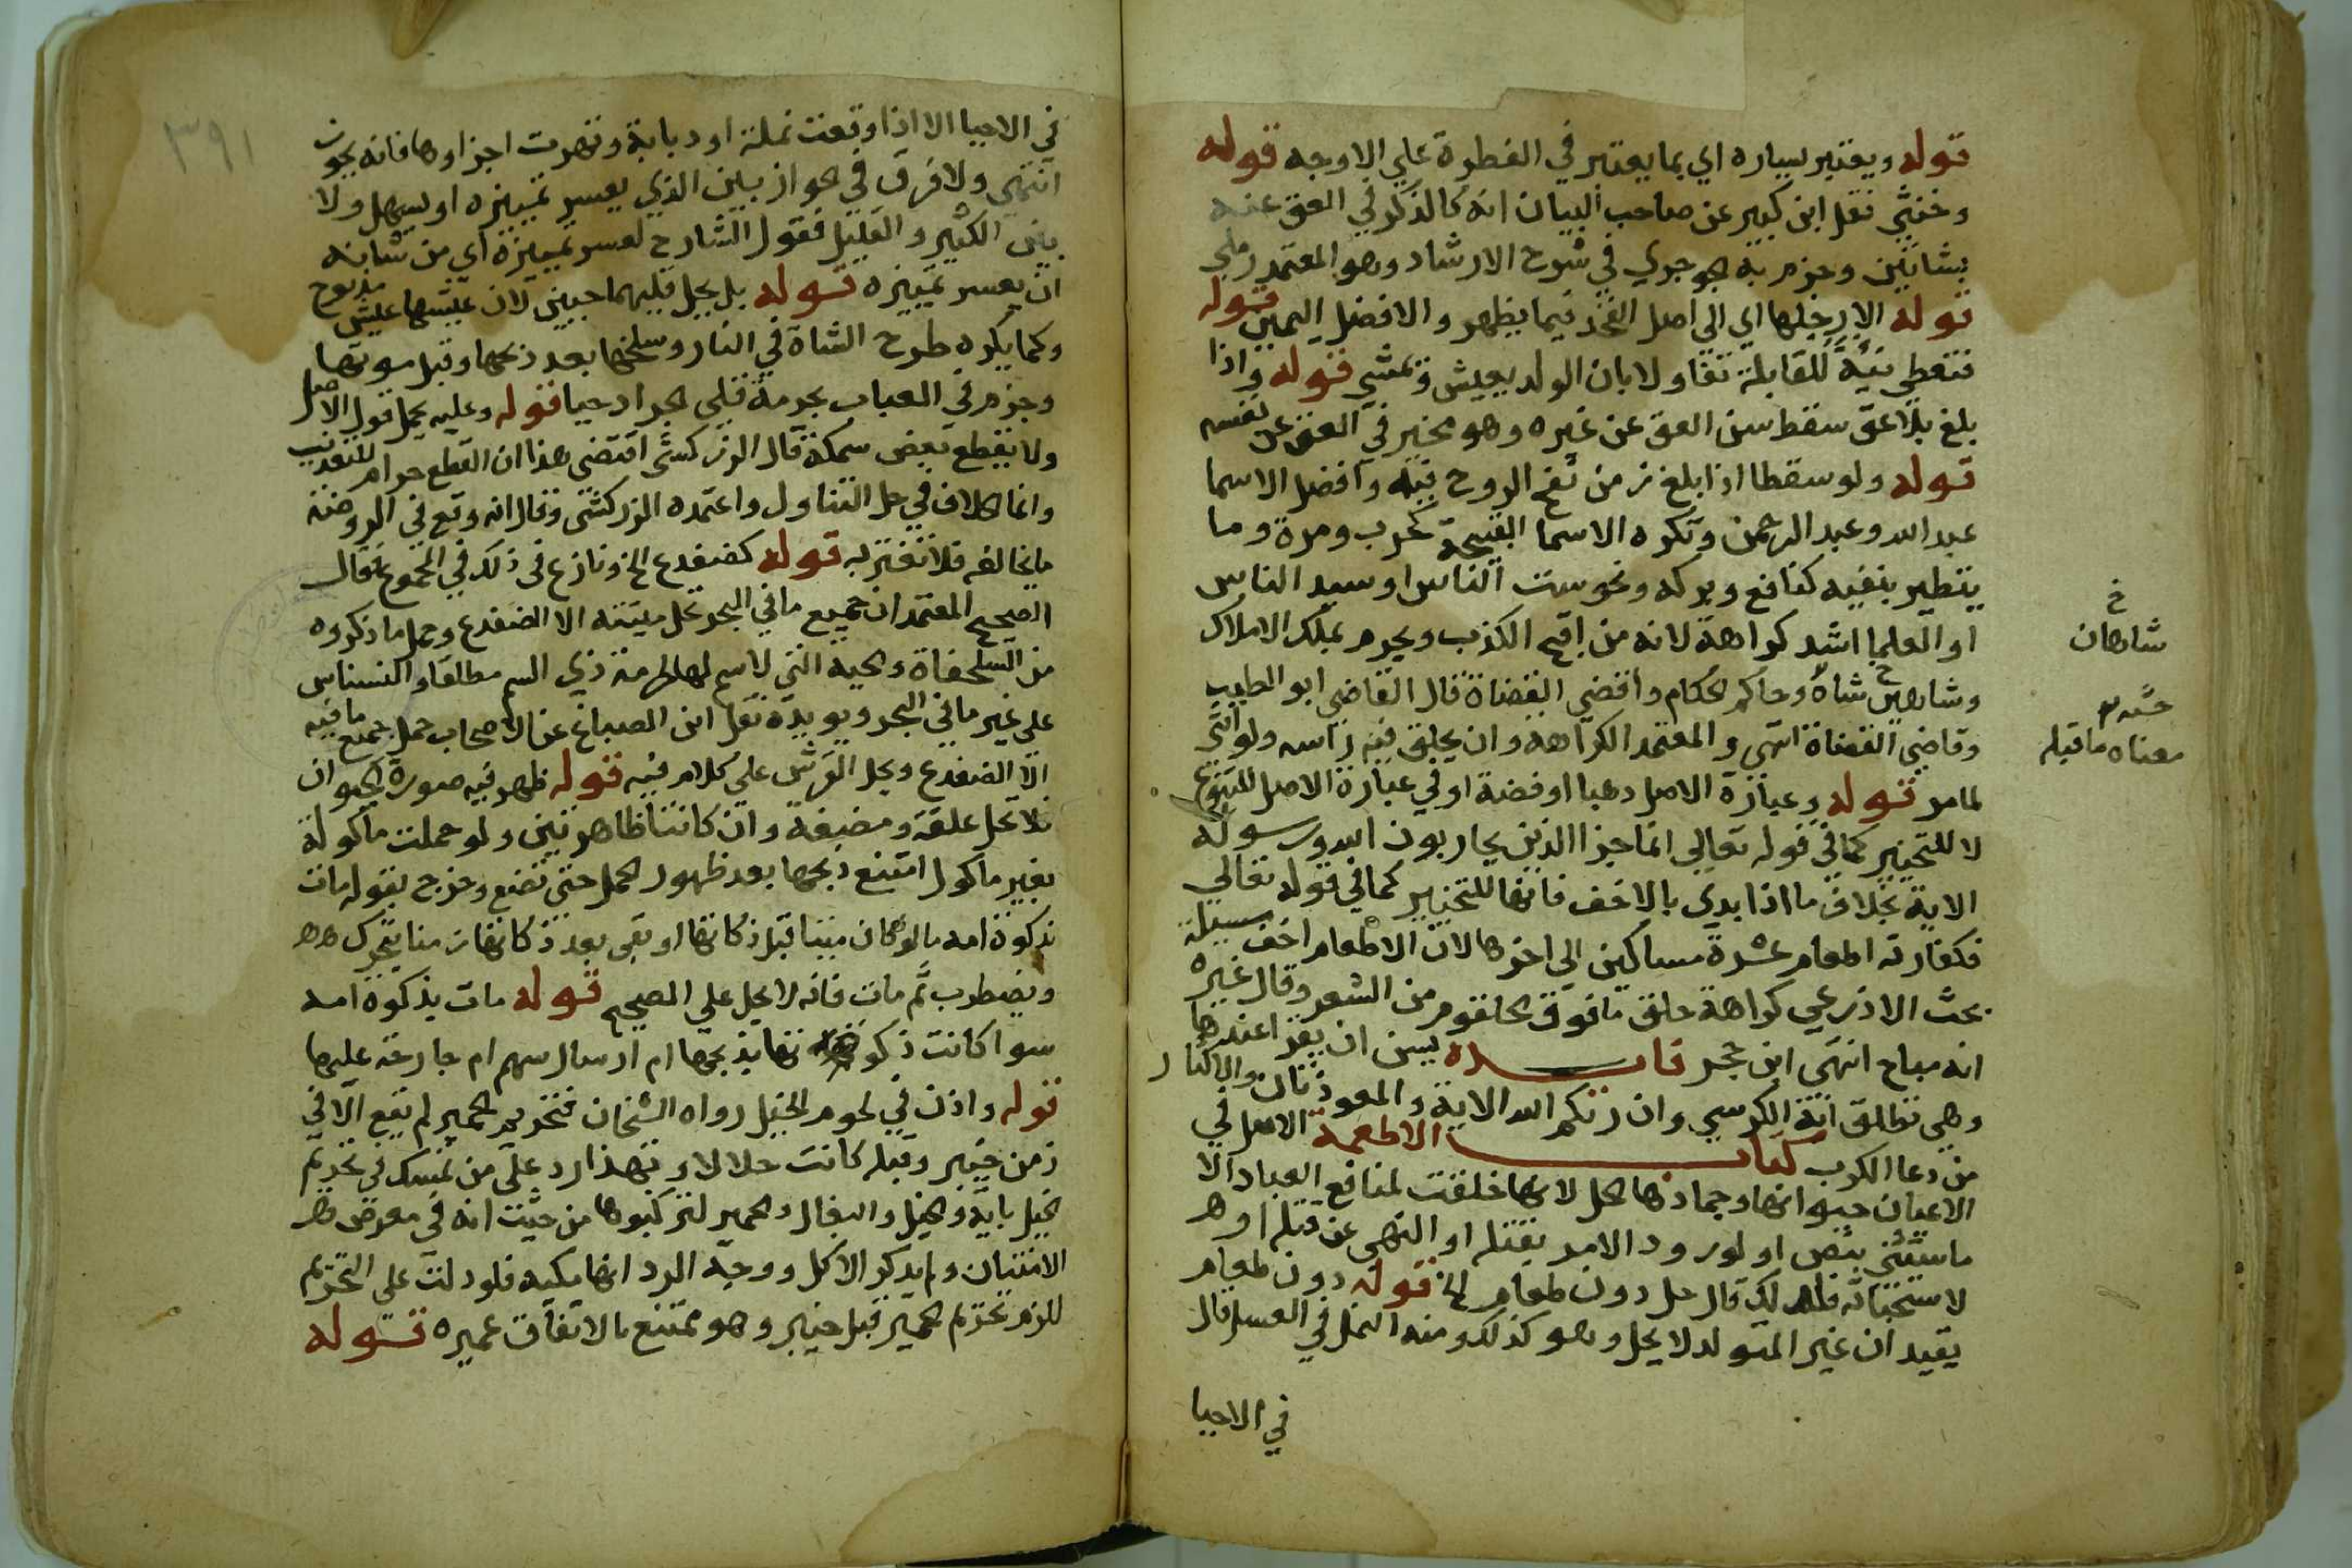 قوله ويعتبر يساره اي بما يعتبر في الفطرة علي الاوجه قوله
وخنثي نقل ابن كبير عن صاحب البيان انه كالذكر في العق عنه
بشاتين وجزم به الجوجري في شرح الارشاد وهو المعتمد رملي
قوله الا رجلها اي الي اصل الفخذ فيما يظهر والافضل اليمين قوله
فتعطي نيئة للقابلة تفاولا بان الولد يعيش وتمشي قوله واذا
بلغ بلا عق سقط سن العق عن غيره وهو مخير في العق عن نفسه
قوله ولو سقطا اذا بلغ زمن نفخ الروح فيه وافضل الاسما
عبد الله وعبد الرحمن وتكره الاسما القبيحة كحرب ومرة وما
يتطير بنفيه كنافع وبركه ونحو ست الناس او سيد الناس
او العلما اشد كراهة لانه من اقبح الكذب ويحرم بملك الاملاك
خ
شاهان
وشاهين شاه وحاكم الحكام واقضي القضاة قال القاضي ابو الطيب
معناه ما قبله
وقاضي القضاة انتهي والمعتمد الكراهة وان يحلق فيه راسه ولو انثي
لما مر قوله وعبارة الاصل دهبا او فضة او في عبارة الاصل للتنويع
لا للتخيير كما في قوله تعالي انما جزا الذين يحاربون الله ورسوله
الاية بخلاف ما اذا بدي بالاخف فانها للتخيير كما في قوله تعالي
فكفارته اطعام عشرة مساكين الي اخرها لان الاطعام اخف سبيله
بحث الاذرعي كراهة حلق ما فوق الحلقوم من الشعر وقال غيره
انه مباح انتهي ابن حجر فايده يسن ان يقرا عندها
وهي تطلق اية الكرسي وان ربكم الله الاية والمعوذتان والاكثار
من دعا الكرب كتاب الاطعمة الاصل في
الاعيان حيوانها وجمادها الحل لانها خلقت لمنافع العباد الا
ما ستثني بنص او لورود الامر بقتله او النهي عن قتله او
لاستخباثه فلذلك قال حل دون طعام الخ قوله دون طعام
يفيد ان غير المتولد لا يحل وهو كذلك ومنه النمل في العسل قال
في الاحيا
٣٩١
في الاحيا الا اذا وقعت نملة او دبابة وتهرت اجزاوها فانه يجوز
انتهي ولا فرق في الجواز بين الذي يعسر تمييزه او يسهل ولا
بين الكثير والقليل فقول الشارح لعسر تمييزه اي من شانه
ان يعسر تمييزه قوله بل يحل قليهما حيين لان عيشها عيش مذبوح
وكما يكره طرح الشاة في النار وسلخها بعد ذبحها وقبل موتها
وجزم في العباب بحرمة قلي الجراد حيا قوله وعليه يحمل قول الاصل
ولا يقطع بعض سمكة قال الزركشي اقتضي هذا ان القطع حرام للتعذيب
وانما الخلاف في حل التناول واعتمده الزركشي وقال انه وقع في الروضة
ما يخالفه فلا تغتر به قوله كضفدع الخ ونازع في ذلك في المجموع فقال
الصحيح المعتمد ان جميع ما في البحر تحل ميتته الا الضفدع وحمل ما ذكروه
من السلحفاة والحية التي لا سم لها لحرمة ذي السم مطلقا والنسناس
علي غير ما في البحر ويويده نقل ابن الصباغ عن الاصحاب حمل جميع ما فيه
الا الضفدع ويحل القرش علي كلام فيه قوله ظهر فيه صورة الحيوان
فلا تحل علقة ومضغة وان كانتا ظاهرتين ولو حملت ماكولة
بغير ماكول امتنع ذبحها بعد ظهور الحمل حتي تضع وخرج بقوله مات
بذكوة امه ما لو كان ميتا قبل ذكاتها او بقي بعد ذكاتها زمنا يتحرك
ويضطرب ثم مات فانه لا يحل علي الصحيح قوله مات بذكوة امه
سوا كانت ذكوتها بذبحها ام ارسال سهم ام جارحة عليها
قوله واذن في لحوم الخيل رواه الشيخان فتحريم الحمير لم يقع الا في
زمن خيبر وقبله كانت حلالا وبهذا رد علي من تمسك في تحريم
الخيل باية والخيل والبغال والحمير لتركبوها من حيث انه في معرض
الامتنان ولم يذكر الاكل ووجه الرد انها مكية فلو دلت علي التحريم
للزم تحريم الحمير قبل خيبر وهو ممتنع بالاتفاق عميره قوله